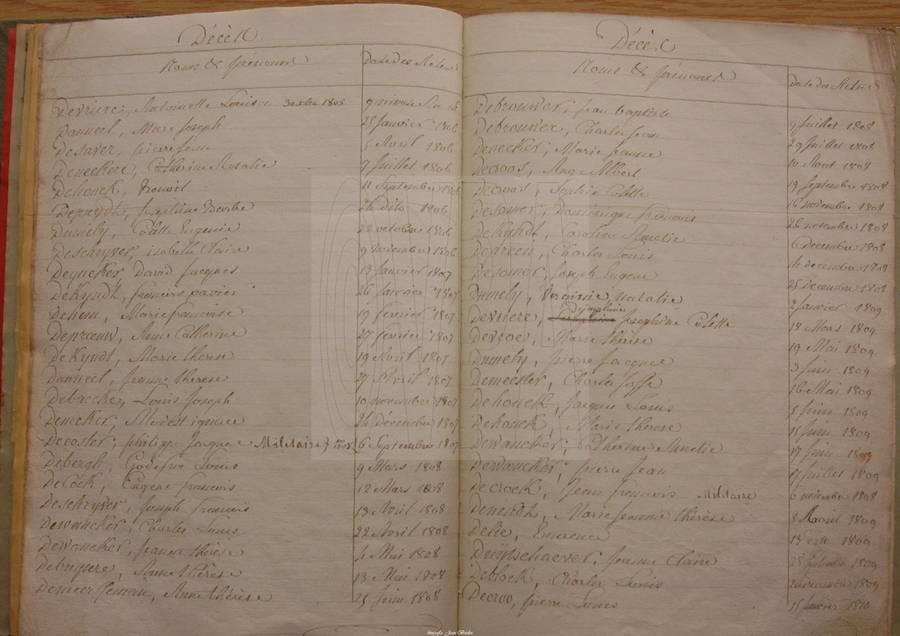 Décès
Noms & prénoms Date des Actes
Derriere, Antoinette Louise
Danneel, Marie Joseph 25 Janvier 1806
Desaver, pierre Jean 5 Avril 1806
Deneckere, Catherine Rosalie 9 Juillet 1806
Dehonck, Benoit 11 Septembre 1806
Depruydt, Josephine Barbe 26 dito 1806
Dumely, Colette Eugenie 22 octobre 1806
Deschryver, isabelle Claire 9 novembre 1806
Deyncker David Jacques 13 Janvier 1807
DeKyndt, francois xavier 26 Janvier 1807
Dehem, Marie francoise 19 fevrier 1807
Depraeuw, Anne Catherine 27 fevrier 1807
DeKyndt, Marie therese 19 Avril 1807
Danneel, Jeanne therese 27 Avril 1807
Debacke, Louis Joseph 10 novembre 1807
Deneckir, Modeste ignace 26 Décembre 1807
Decoster, philippe Jacques Militaire 6 Septembre 1807
Debergh, Godefroi Louis 9 Mars 1808
Decock, Eugene francois 12 Mars 1808
Deschryver, Joseph francois 13 Avril 1808
Dewancker, Charles Louis 22 Avril 1808
Dewancker, francis therese 4 Mai 1808
Debuysere, Anne therese 13 Mai 1808
Anne thérèse 25 Juin 1808
Décès
Noms & prénoms Date des Actes
Debrouwer, Jean baptiste 9 Juillet 1808
Debrouwer, Charles Jean 29 Juillet 1808
Deneckir, Marie Jeanne 10 Aout 1808
Decroos, Ange Albert 19 Septembre 1808
Decroos, Sophie Colette 16 novembre 1808
Desomer, Dominique francois 26 novembre 1808
Dehandt, Caroline Amelie 6 Decembre 1808
Charles Louis 16 decembre 1808
Desomer, Joseph Eugene 25 Decembre 1808
Dumely, Natalie 2 Janvier 1809
Derriere, Symphoire Josephine Colette 18 Mars 1809
Marie therese 19 Mai 1809
Dumely, pierre Jacques 3 Juin 1809
Demeester, Charles Joffe 26 Mai 1809
Dehonck, Jacques Louis 8 Juin 1809
Dehonck, Marie therese 15 Juin 1809
Dewancker, Catherine Amelie 17 Juin 1809
Dewancker, pierre Jean 9 Juillet 1809
Decrock, Jean francois Militaire 6 novembre 1808
Marie Jeanne therese 8 Aout 1809
Emerence
Jeanne Claire
Deblock, Charles Louis 2 novembre 1809
Decroo, pierre Louis 15 Janvier 1810